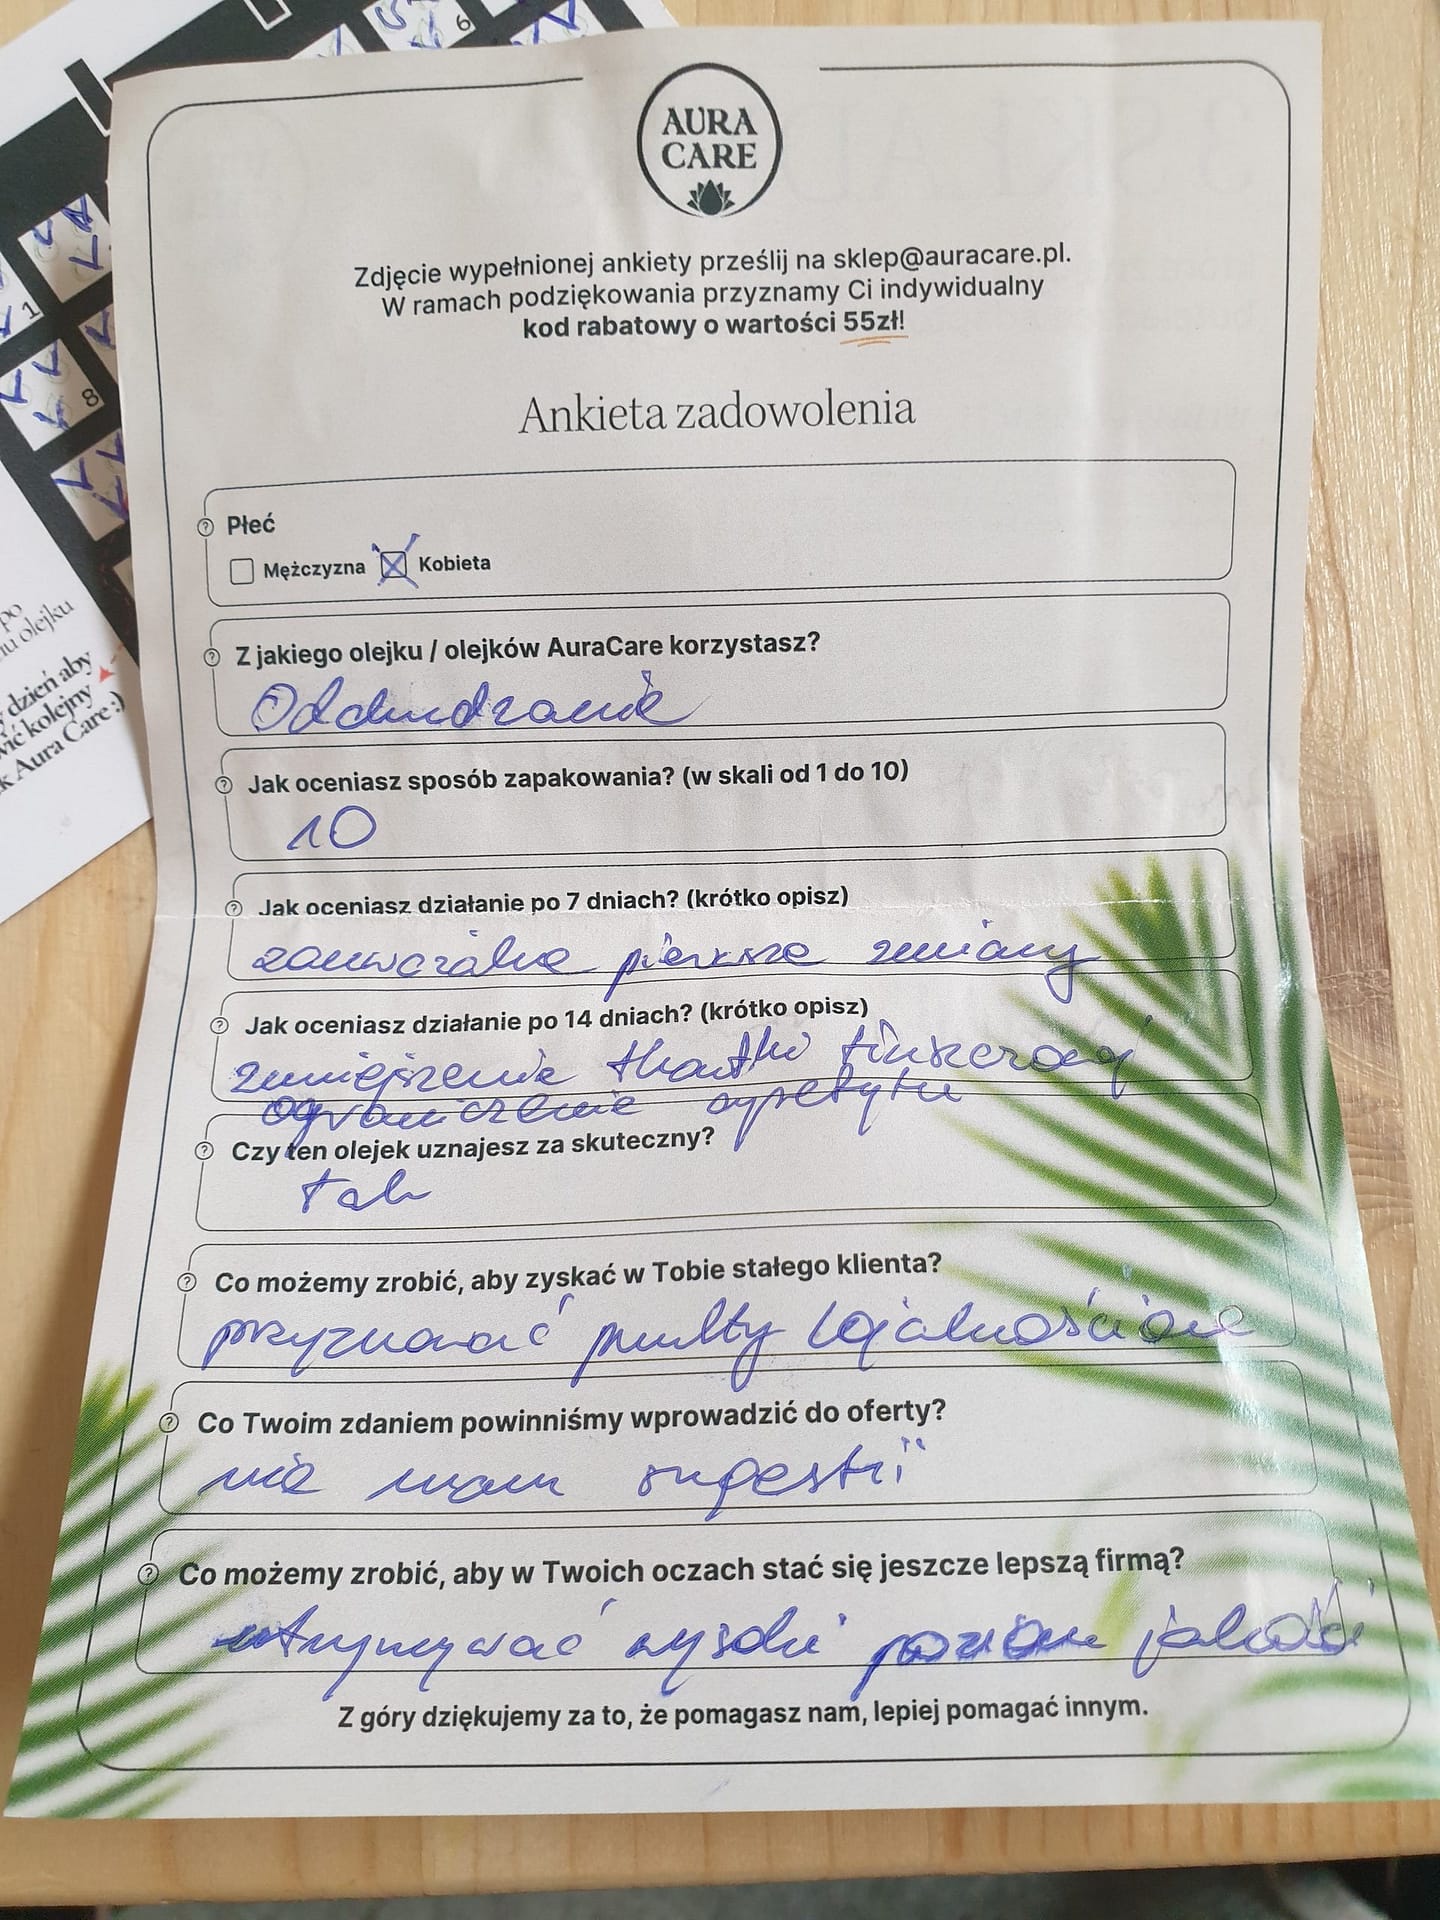 6
1
8
po
iu olejku
dzień aby
wić kolejny
k Aura Care:)
AURA
CARE
Zdjęcie wypełnionej ankiety prześlij na sklep@auracare.pl.
W ramach podziękowania przyznamy Ci indywidualny
kod rabatowy o wartości 55zł!
Ankieta zadowolenia
Płeć
Mężczyzna Kobieta
Z jakiego olejku / olejków AuraCare korzystasz?
Odchudzanie
Jak oceniasz sposób zapakowania? (w skali od 1 do 10)
10
Jak oceniasz działanie po 7 dniach? (krótko opisz)
zauważalne pierwsze zmiany
Jak oceniasz działanie po 14 dniach? (krótko opisz)
zmniejszenie tkanki tłuszczowej
ograniczenie apetytu
Czy ten olejek uznajesz za skuteczny?
tak
Co możemy zrobić, aby zyskać w Tobie stałego klienta?
przyznawać punkty lojalnościowe
Co Twoim zdaniem powinniśmy wprowadzić do oferty?
nie mam sugestii
Co możemy zrobić, aby w Twoich oczach stać się jeszcze lepszą firmą?
utrzymywać wysoki poziom jakości
Z góry dziękujemy za to, że pomagasz nam, lepiej pomagać innym.